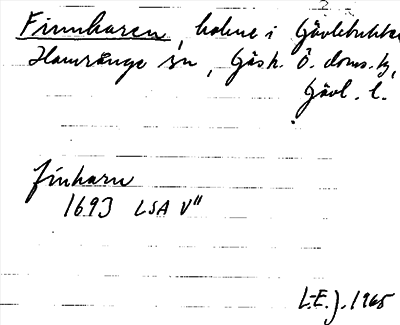 Finnharen, holme i Gävlebukte
Hamrånge sn, Gästr. Ö. doms. tg,
Gävl. l.
finharn
1693 LSA V"
L.E.J. 1965